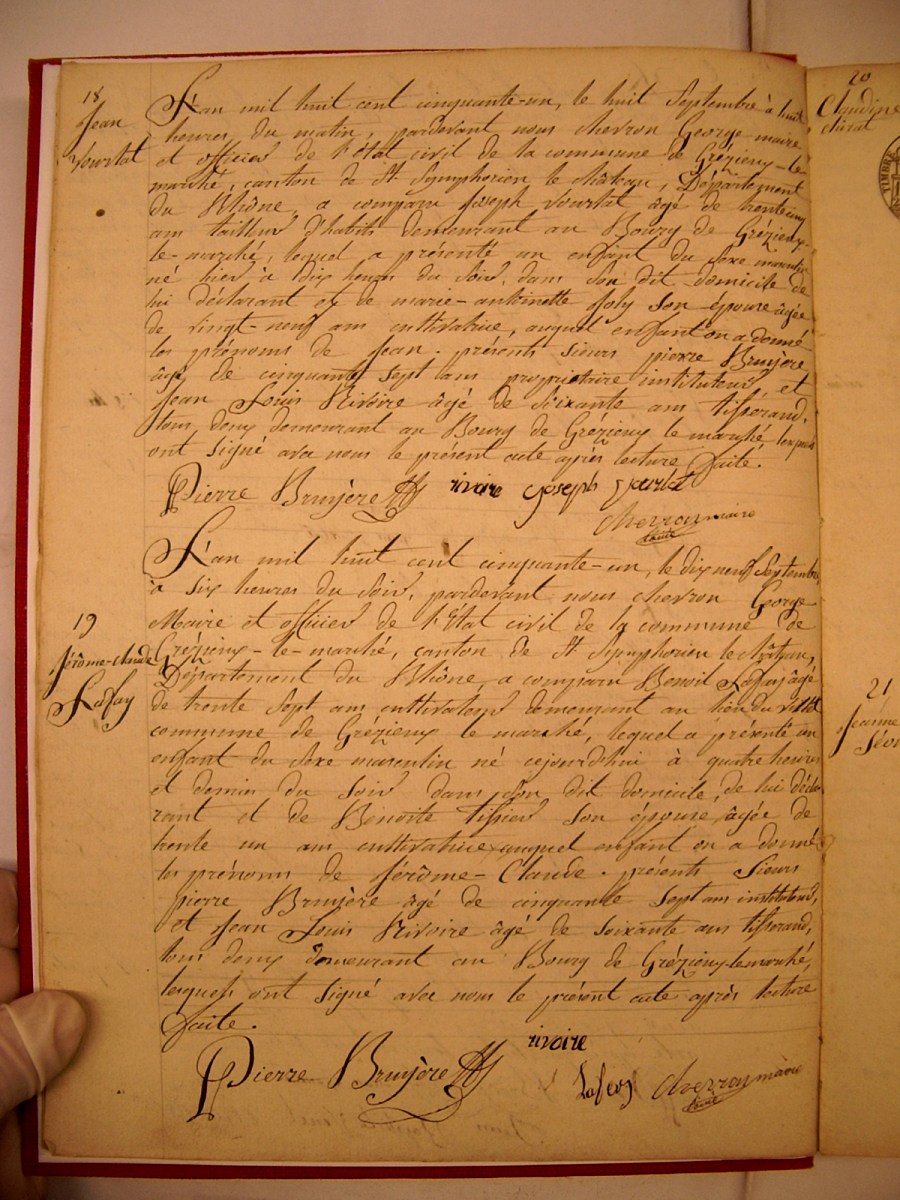 18
Jean
Vourlat
L'an mil huit cent cinquante-un, le huit Septembre à huit
heures du matin, pardevant nous chevron George maire
et officier de l'Etat civil de la commune de Grézieux-le-
marché, canton de St Symphorien le château, Département
du Rhône, a comparu Joseph Vourlat âgé de trente cinq
ans tailleur d'habits demeurant au Bourg de Grézieux-
le-marché, lequel a présenté un enfant du Sexe masculin
né hier à dix heures du Soir, dans Son dit domicile de
lui déclarant et de marie-antoinette Joly Son épouse âgée
de vingt-neuf ans cultivatrice, auquel enfant on a donné
les prénoms de Jean. présents Sieurs pierre Bruyère
âgé de cinquante Sept ans propriétaire instituteur, et
Jean Louis Rivoire âgé de Soixante ans tisserand,
tous deux demeurant au Bourg de Grézieux le marché
ont Signé avec nous le présent acte après lecture faite.
Pierre Bruyère rivoire Joseph Vourlat
chevron maire
19
Jérôme-claude
Lafay
L'an mil huit cent cinquante-un, le dix neuf Septembre,
à Six heures du Soir, pardevant nous chevron George
Maire et officier de l'Etat civil de la commune de
Grézieux-le-marché, canton de St Symphorien le château,
Département du Rhône, a comparu Benoit Lafay âgé
de trente Sept ans cultivateur demeurant au lieu du
commune de Grézieux le marché, lequel a présenté un
enfant du Sexe masculin né cejourd'hui à quatre heures
et demies du Soir dans Son dit domicile, de lui décla-
rant et de Benoîte tissier Son épouse âgée de
trente un ans cultivatrice auquel enfant on a donné
les prénoms de Jérôme-Claude. présents Sieurs
pierre Bruyère âgé de cinquante Sept ans instituteur,
et Jean Louis Rivoire âgé de Soixante ans tisserand,
tous deux demeurant au Bourg de Grézieux-le-marché,
lesquels ont Signé avec nous le présent acte après lecture
faite.
Pierre Bruyère rivoire
Lafay chevron maire
20
Claudine
TIMBRE
21
Jeanne